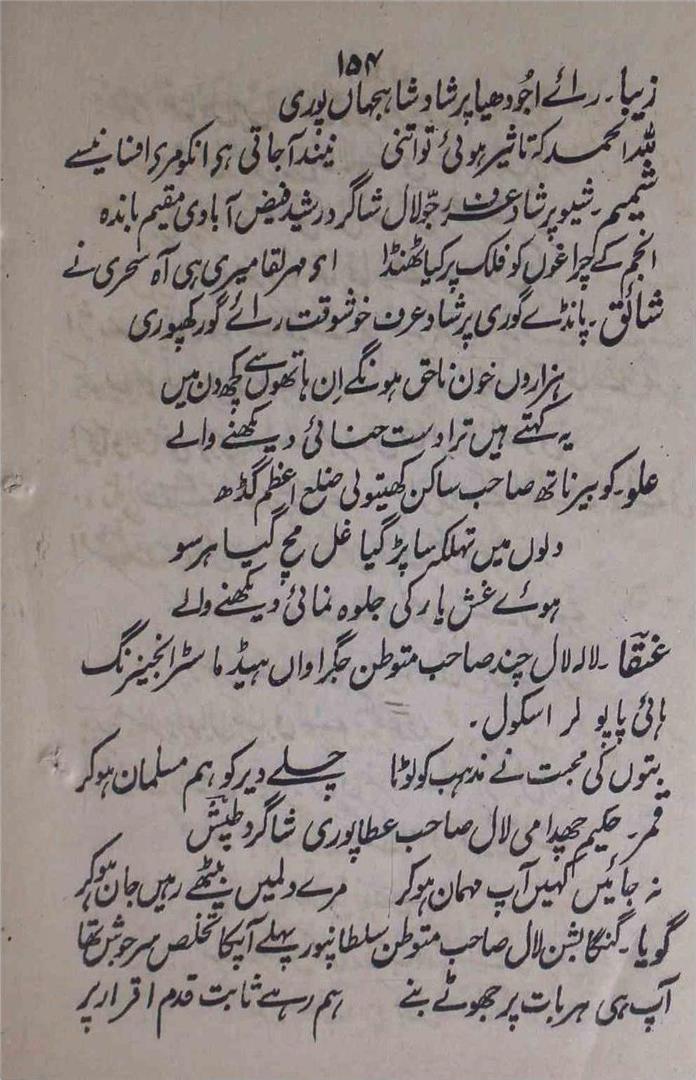 ۱۵۴
زیبا۔ رائے اجودھیا پرشاد شاہجہاں پوری
للہ الحمد کہ تاثیر ہوئی تو اتنی نیند آجاتی ہی انکو مری افسانیسے
شمیم۔ شیو پرشاد عرف رجّو لال شاگرد رشید فیض آبادی مقیم باندہ
انجم کے چراغوں کو فلک پر کیا ٹھنڈا او مہر لقا میری ہی آہ سحری نے
شائق۔ پانڈے گوری پرشاد عرف خوشوقت رائے گورکھپوری
ہزاروں خون ناحق ہونگے اِن ہاتھوں سے کچھ دن میں
یہ کہتے ہیں ترا دست حنائی دیکھنے والے
علو۔ کوبیر ناتھ صاحب ساکن کھیتولی ضلع اعظم گڈھ
دلوں میں تہلکہ سا پڑ گیا غل مچ گیا ہر سو
ہوئے غش یار کی جلوہ نمائی دیکھنے والے
عنقا۔ لالہ لال چند صاحب متوطن جگراواں ہیڈ ماسٹر انجینرنگ
ہائی پاپولر اسکول۔
بتوں کی محبت نے مذہب کو لوٹا چلے دیر کو ہم مسلمان ہوکر
قمر۔ حکیم چھدامی لال صاحب عطاپوری شاگرد طپش
نہ جائیں کہیں آپ مہمان ہوکر مرے دلمیں بیٹھے رہیں جان ہوکر
گویا۔ گنگا بشن لال صاحب متوطن سلطانپور پہلے آپکا تخلص سرخوش تھا
آپ ہی ہر بات پر جھوٹے بنے ہم رہے ثابت قدم اقرار پر